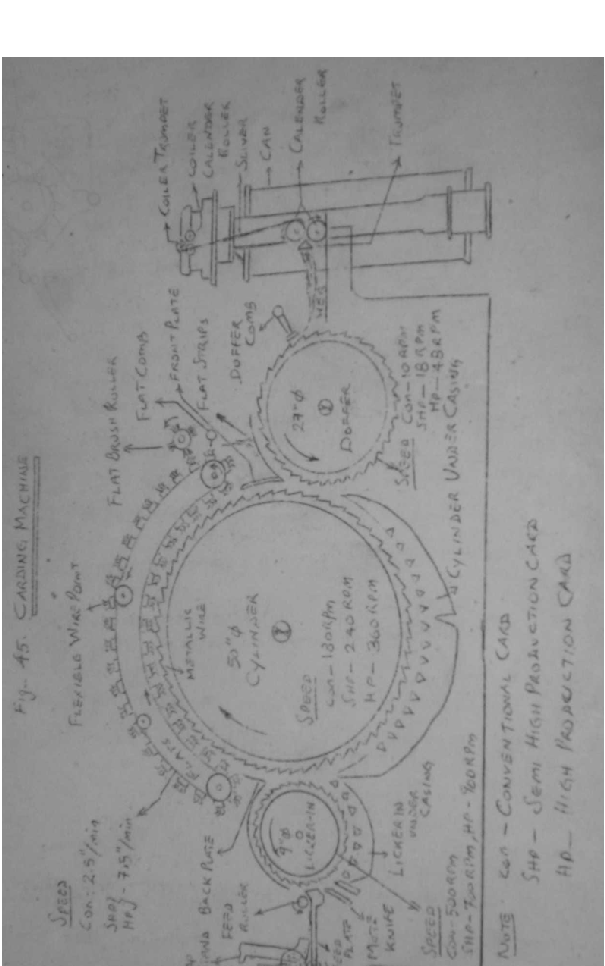 Fig- 45. CARDING MACHINE
SPEED
Con: 2.5"/min
SHP}
HP} - 7.5"/min
FLEXIBLE WIRE POINT
FLAT BRUSH ROLLER
FLAT COMB
FRONT PLATE
FLAT STRIPS
DOFFER
COMB
COILER TRUMPET
COILER
CALENDER
ROLLER
SLIVER
CAN
CALENDER
ROLLER
TRUMPET
WEB
BACK PLATE
FEED
ROLLER
FLATS
METALLIC
WIRE
50"φ
CYLINDER
SPEED
Con-180RPM
SHP- 240 RPM
HP- 360RPM
9"φ
LICKER-IN
27"φ
DOFFER
SPEED Con-10 RPM
SHP- 18 RPM
HP- 48 RPM
CYLINDER UNDER CASING
LICKERIN
UNDER
CASING
PLATE
MOTE
KNIFE
SPEED
Con-500RPM
SHP-700RPM, HP-900RPM
NOTE Con - CONVENTIONAL CARD
SHP - SEMI HIGH PRODUCTION CARD
HP - HIGH PRODUCTION CARD